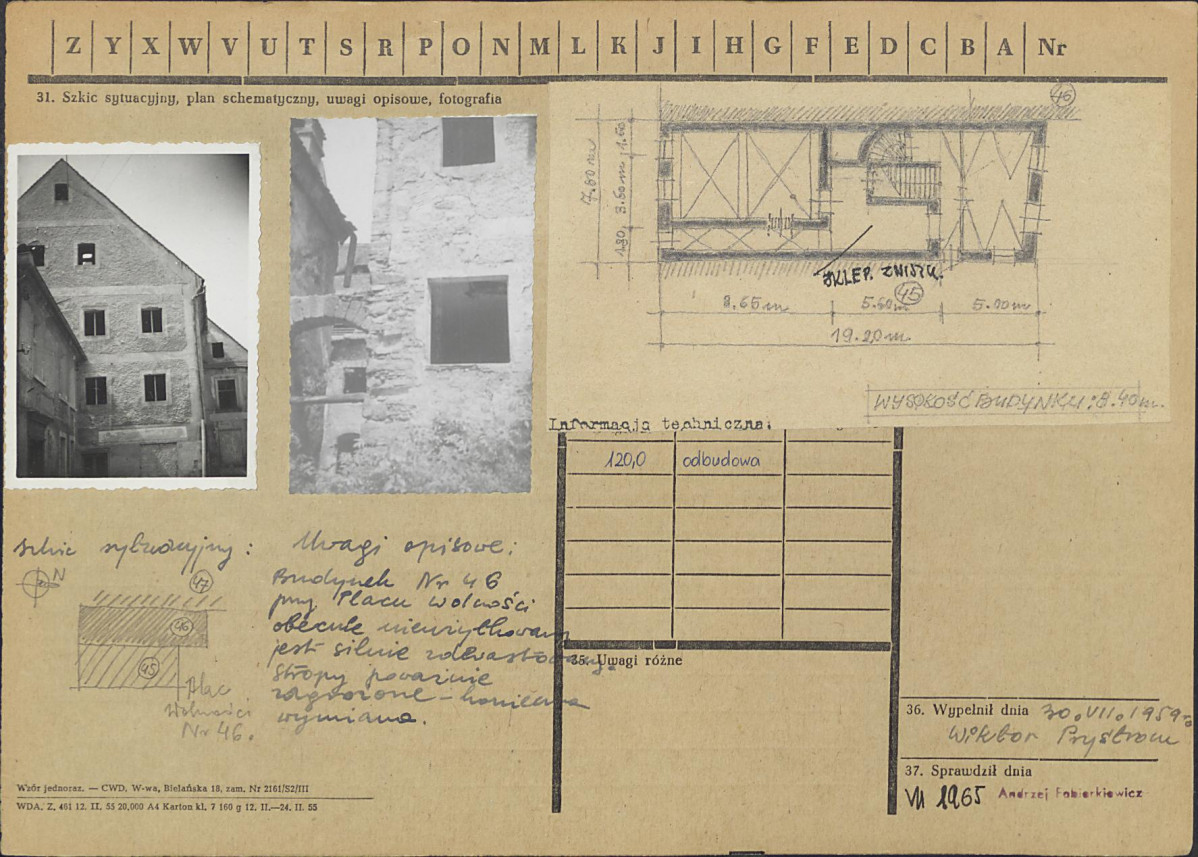 Z Y X W V U T S R P O N M L K J I H G F E D C B A Nr
31. Szkic sytuacyjny, plan schematyczny, uwagi opisowe, fotografia
46
7.80 m
1.60
SKLEP. ZNISZCZ.
45
8.65 m
5.00 m
19.20 m.
WYSOKOŚĆ BUDYNKU: 8.40 m.
Informacja techniczna:
120,0 odbudowa
szkic sytuacyjny:
N
47
46
45
Plac
Wolności
Nr 46.
Uwagi opisowe:
Budynek Nr 46
przy Placu Wolności
obecnie nieużytkowany
jest silnie zdewastowany.
Stropy poważnie
zagrożone – konieczna
wymiana.
35. Uwagi różne
36. Wypełnił dnia 30.VII.1959 r.
Wiktor Prystrom
37. Sprawdził dnia
VII 1965 Andrzej
Wzór jednoraz. — CWD, W-wa, Bielańska 18, zam. Nr 2161/S2/III
WDA. Z. 461 12. II. 55 20,000 A4 Karton kl. 7 160 g 12. II.—24. II. 55